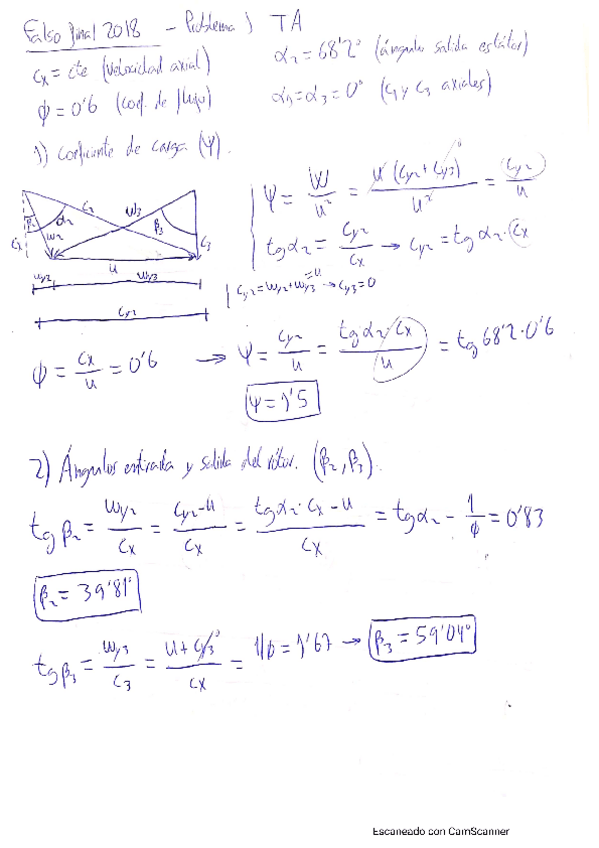 Falso final 2018 - Problema 1 TA
Cx = cte (velocidad axial)
α2 = 68'2° (ángulo salida estátor)
ϕ = 0'6 (coef. de flujo)
α1 = α3 = 0° (C1 y C3 axiales)
1) Coeficiente de carga (Ψ).
Ψ = W/u² = u(Cy2+Cy3)/u² = Cy2/u
tgα2 = Cy2/Cx → Cy2 = tgα2·Cx
Cy2 = Wy2 + Wy3 → Cy3 = 0
=u
β2 α2 C2 W3 β3
C1 W2 C3
u
Wy2 Wy3
Cy2
ϕ = Cx/u = 0'6 → Ψ = Cy2/u = tgα2·Cx/u = tg68'2·0'6
Ψ = 1'5
2) Ángulos entrada y salida del rótor. (β2, β3).
tgβ2 = Wy2/Cx = Cy2-u/Cx = tgα2·Cx - u/Cx = tgα2 - 1/ϕ = 0'83
β2 = 39'81°
tgβ3 = Wy3/C3 = u + Cy3/Cx = 1/ϕ = 1'67 → β3 = 59'04°
0
Escaneado con CamScanner